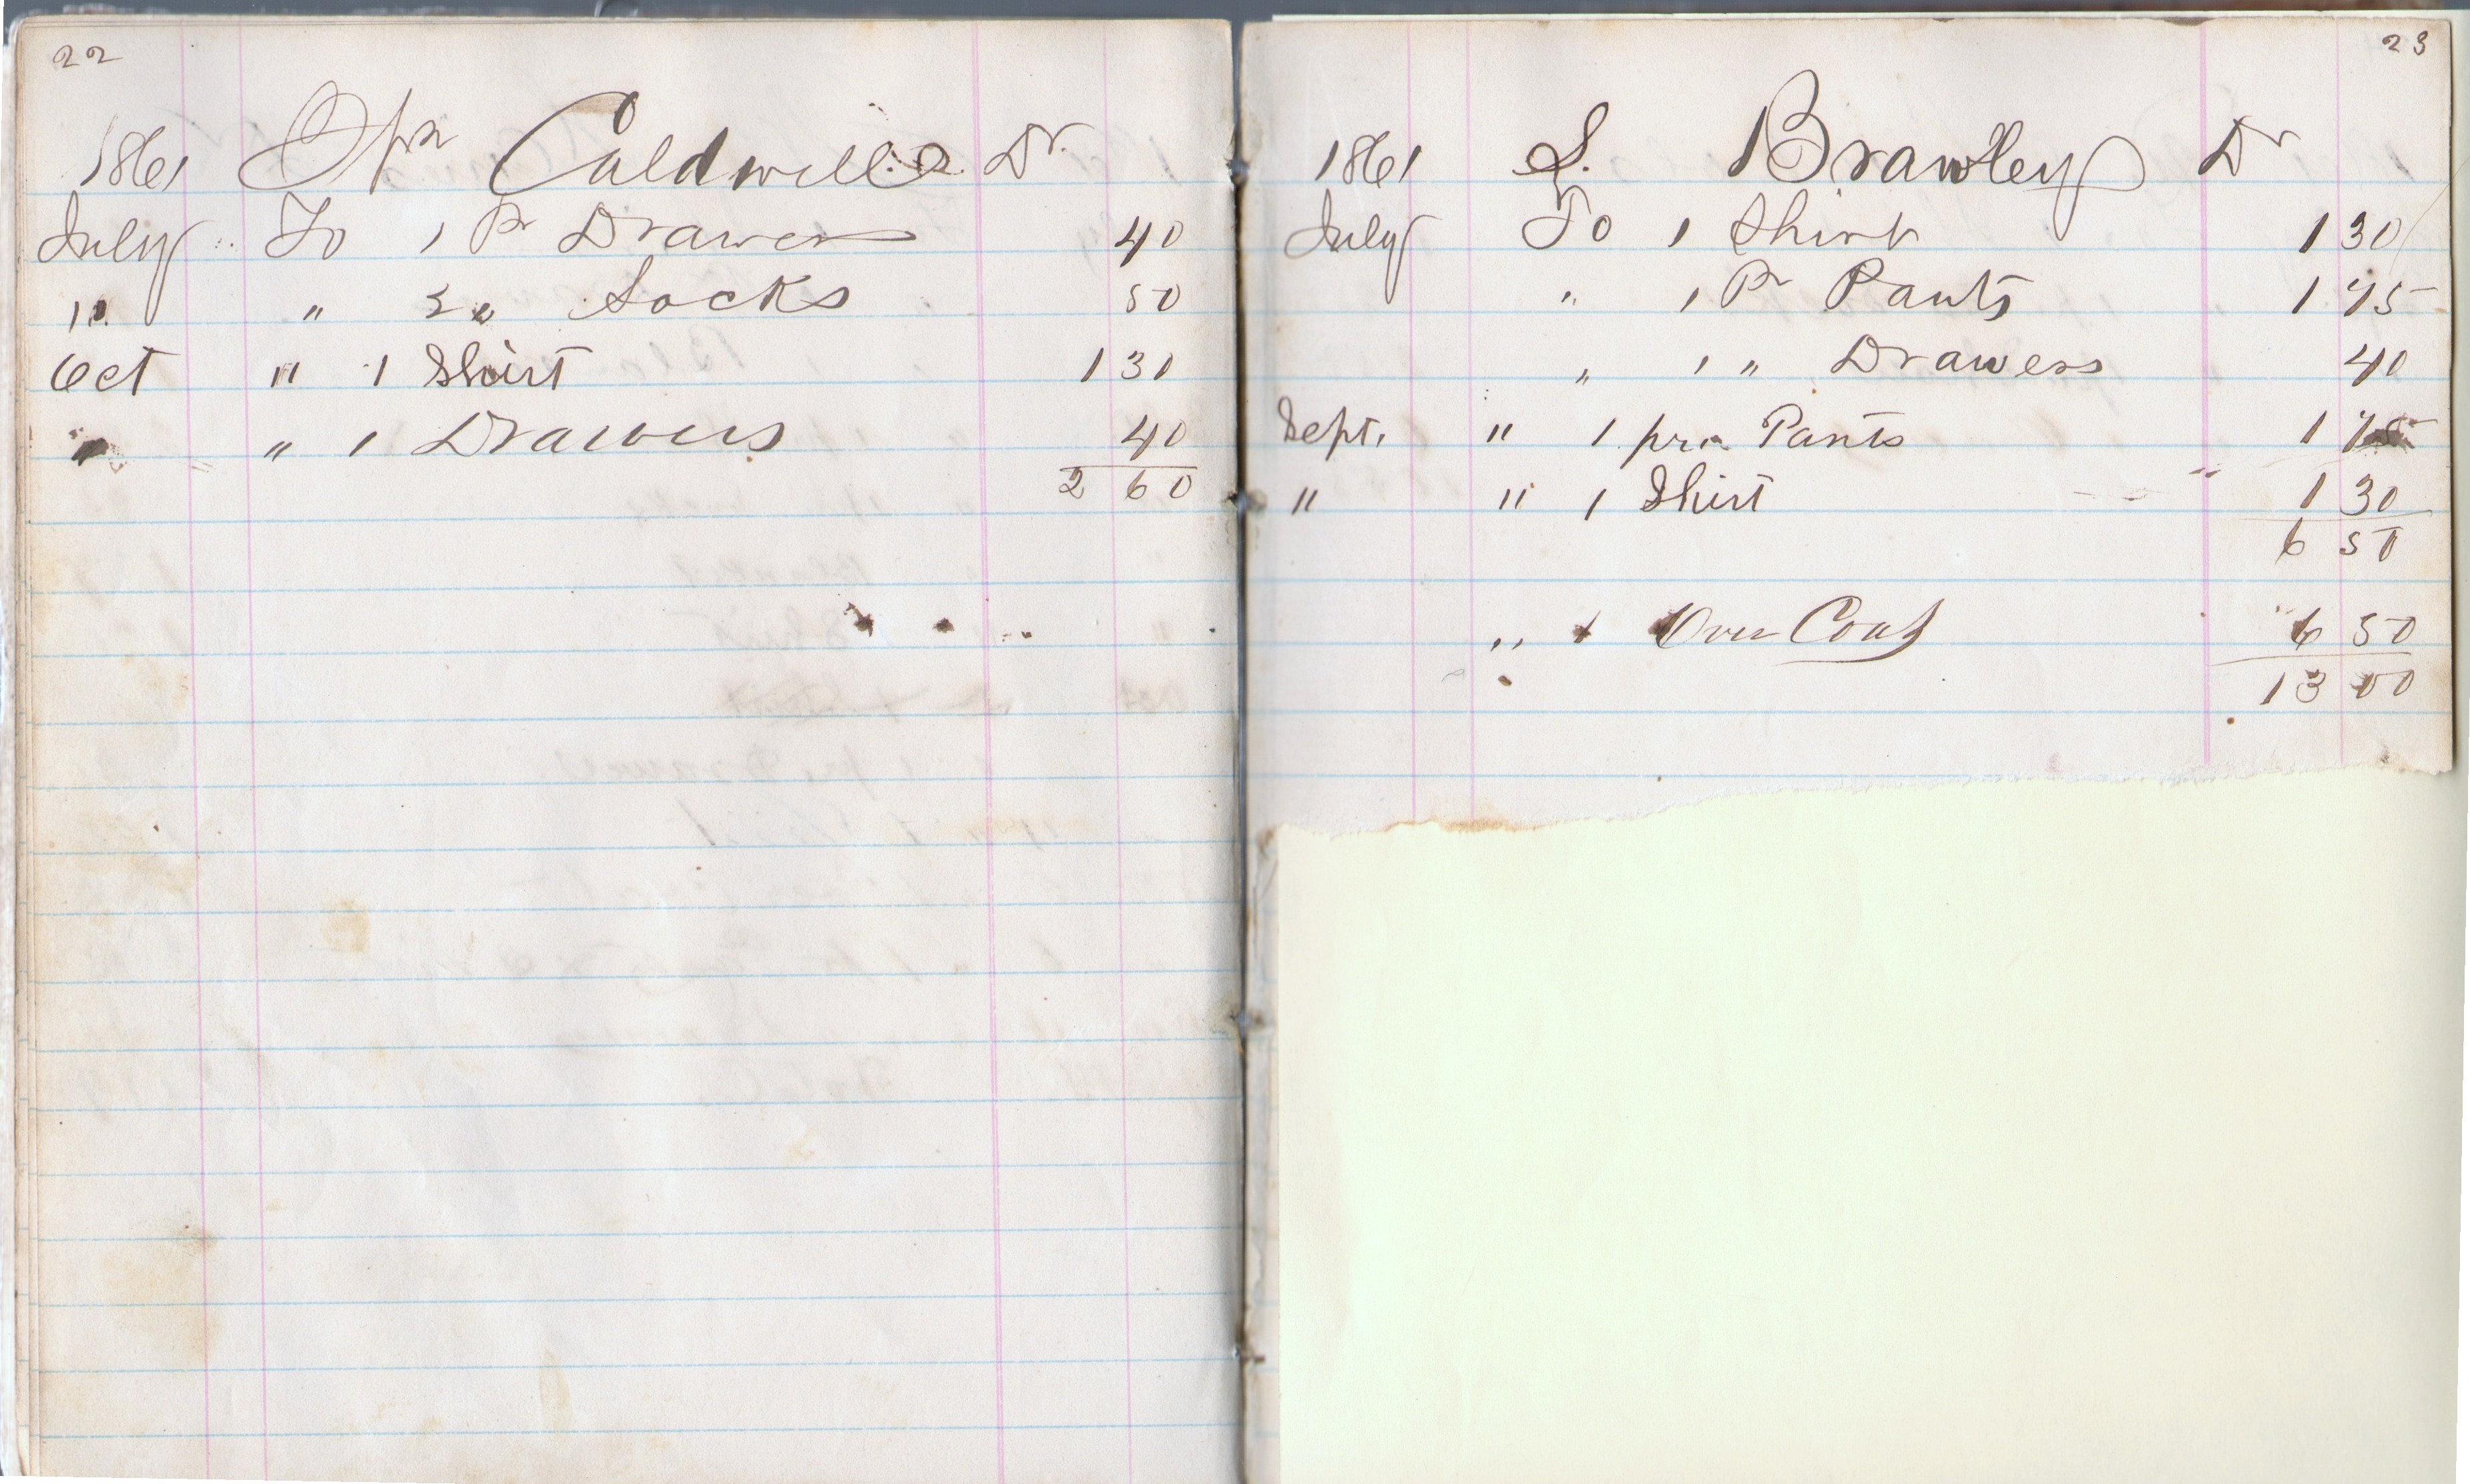 22
1861 Caldwell Dr.
July To 1 Pr Drawers 40
" " 2 " Socks 50
Oct " 1 Shirt 1 30
" " 1 Drawers 40
2 60
23
1861 S. Brawley Dr
July To 1 Shirt 1 30
" 1 Pr Pants 1 75
" 1 " Drawers 40
Sept. " 1 pr Pants 1 75
" " 1 Shirt 1 30
6 50
" 1 Over Coat 6 50
13 00